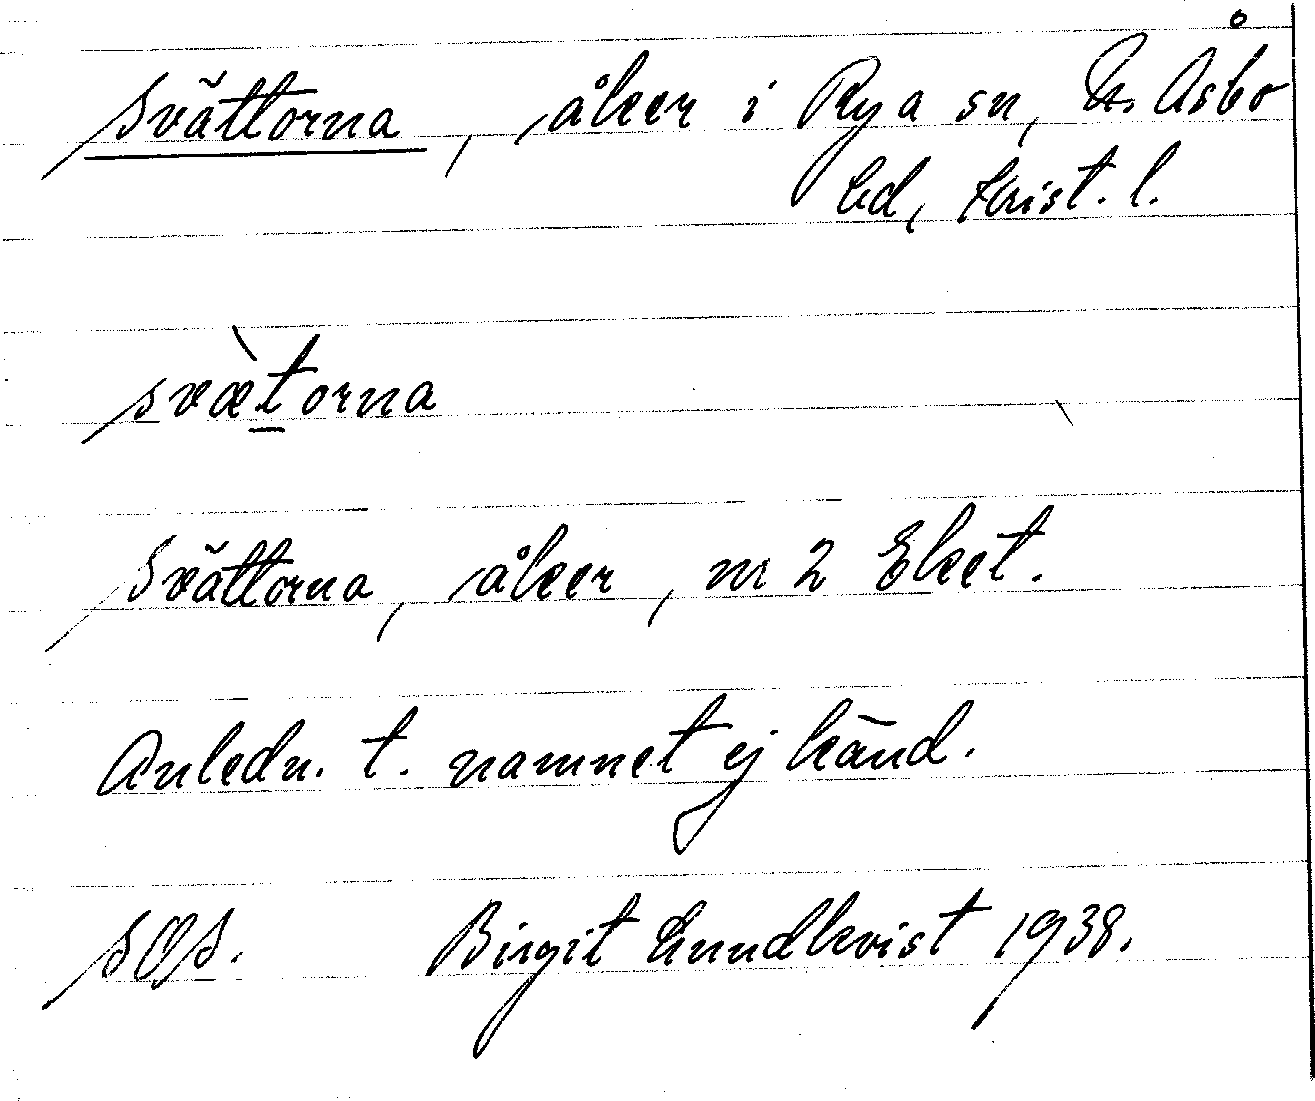 Svättorna, åker i Rya sn, N. Åsbo
hd, Krist. l.
svæ̀torna
Svättorna, åker, nr 2 Eket.
Anledn. t. namnet ej känd.
SOS. Birgit Lundkvist 1938.